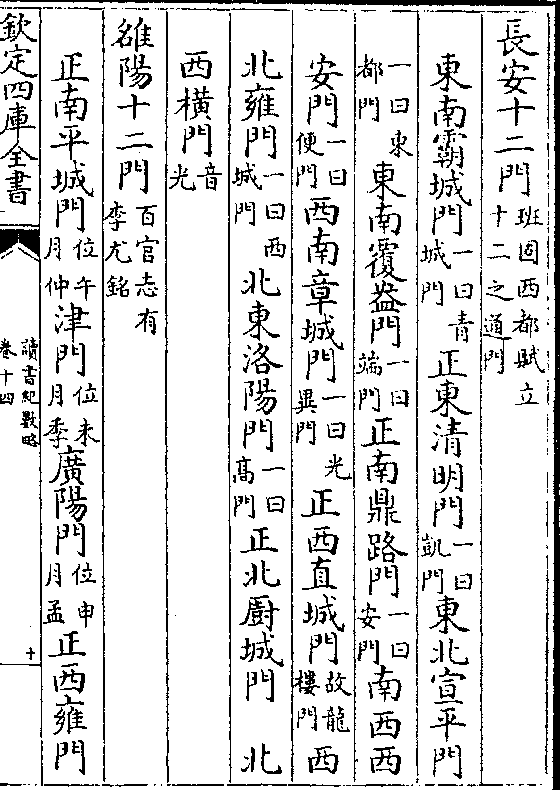 長安十二門班固西都賦立十二之通門
東南霸城門一曰青城門正東清明門一曰凱門東北宣平門
一曰東都門東南覆盎門一曰端門正南鼎路門一曰安門南西西
安門一曰便門西南章城門一曰光異門正西直城門故龍樓門西
北雍門一曰西城門北東洛陽門一曰高門正北厨城門北
西橫門音光
雒陽十二門百官志有李尤銘
正南平城門位午月仲津門位未月季廣陽門位申月孟正西雍門
欽定四庫全書
讀書紀數略
卷十四
十